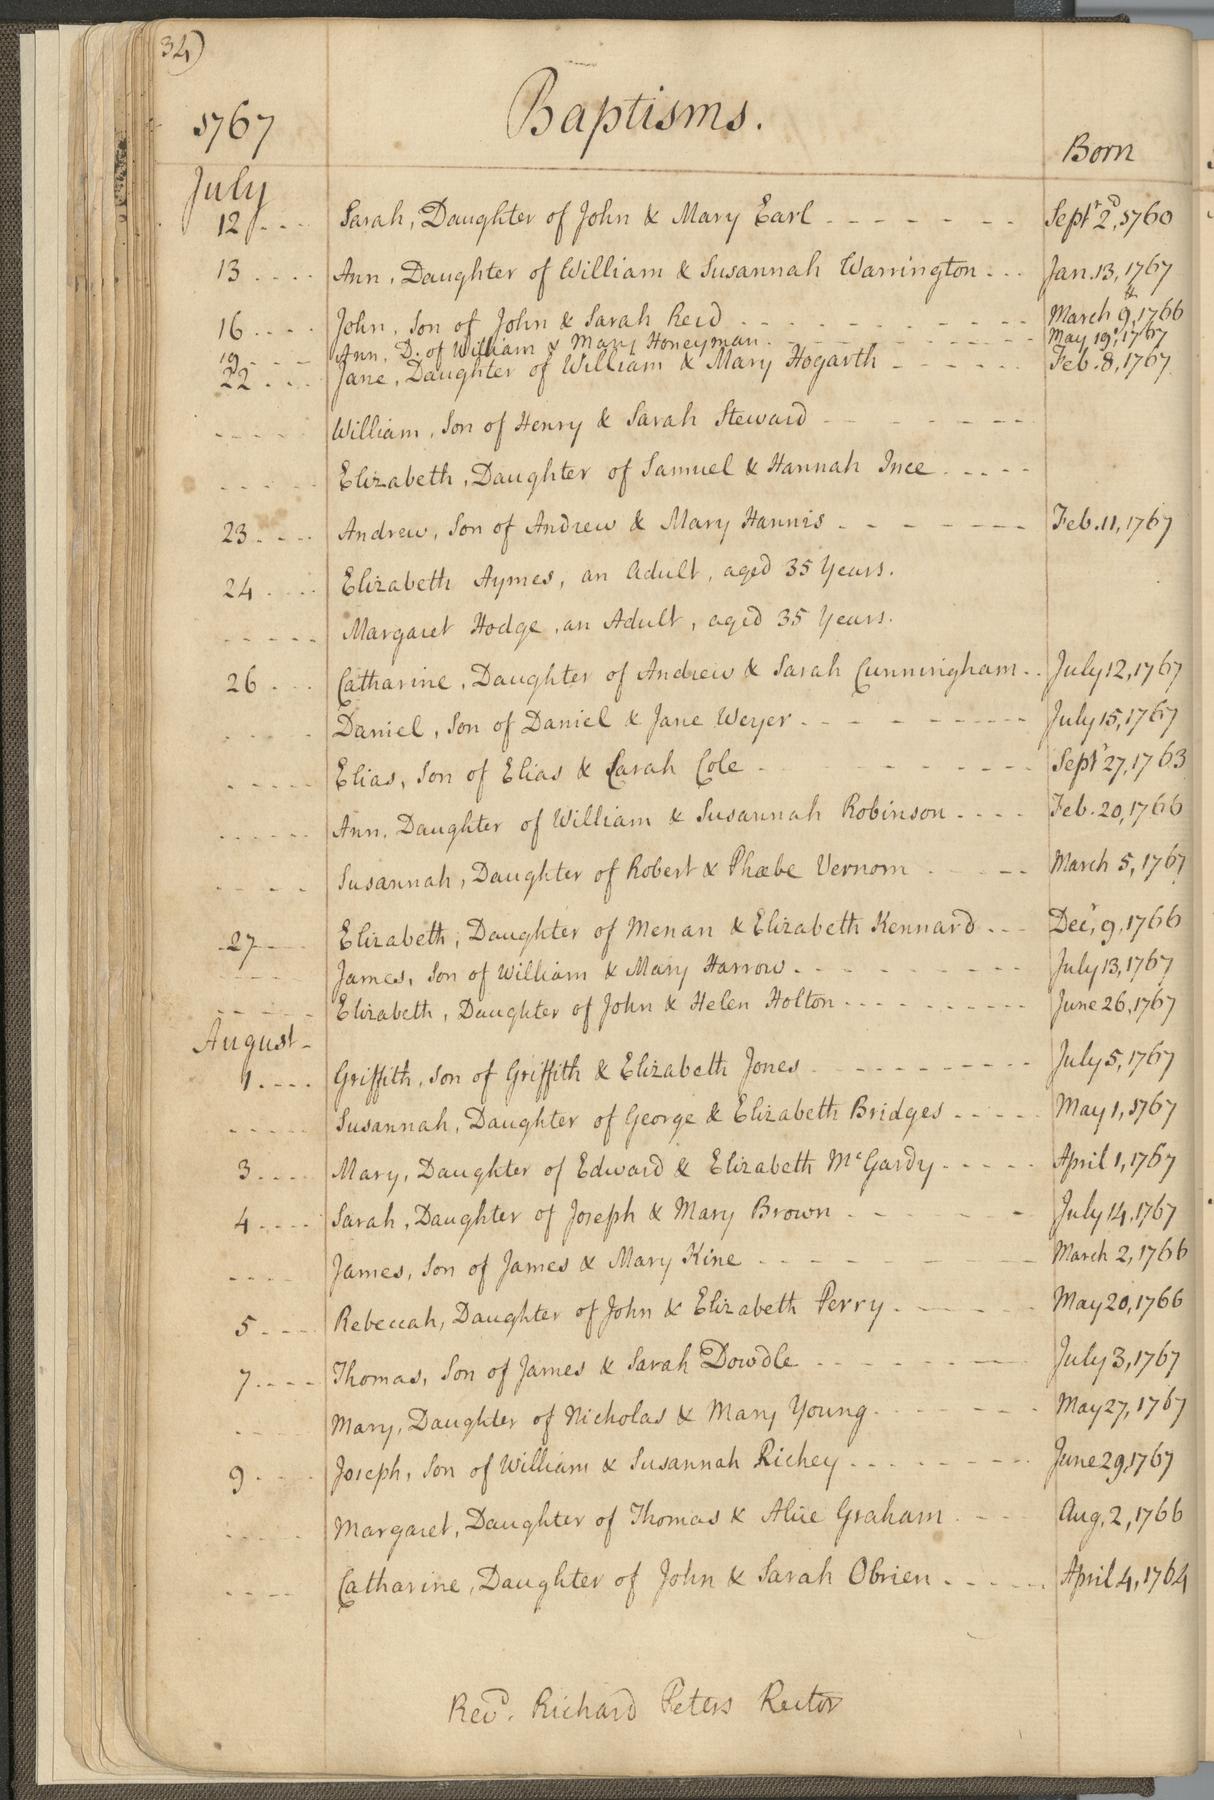 34)
1767 Baptisms. Born
July
12 - - - Sarah, Daughter of John & Mary Earl - - - - - - - Septr. 2d, 1760
13 - - - - Ann, Daughter of William & Susannah Warrington - - - Jan. 13, 1767
16 - - - - John, Son of John & Sarah Reid - - - - - - - - - - March 9, 1766
19 - - - - Ann, D. of William & Mary Honeyman - - - - - - - - May 19th, 1767
22 - - - - Jane, Daughter of William & Mary Hogarth - - - - - - Feb. 8, 1767
- - - - - William, Son of Henry & Sarah Steward - - - - - - -
- - - - - Elizabeth, Daughter of Samuel & Hannah Ince - - - - -
23 - - - - Andrew, Son of Andrew & Mary Hannis - - - - - - - - Feb. 11, 1767
24 - - - - Elizabeth Aymes, an Adult, aged 35 Years.
- - - - - Margaret Hodge, an Adult, aged 35 Years.
26 - - - Catharine, Daughter of Andrew & Sarah Cunningham - - July 12, 1767
- - - - Daniel, Son of Daniel & Jane Weyer - - - - - - - - - July 15, 1767
- - - - - Elias, Son of Elias & Sarah Cole - - - - - - - - Septr 27, 1763
- - - - - - Ann, Daughter of William & Susannah Robinson - - - - Feb. 20, 1766
- - - - Susannah, Daughter of Robert & Phœbe Vernorn - - - - - March 5, 1767
- 27 - - Elizabeth, Daughter of Menan & Elizabeth Kennard - - - Decr, 9, 1766
- - - - James, Son of William & Mary Harrow - - - - - - - - - July 13, 1767
- - - - - Elizabeth, Daughter of John & Helen Holton - - - - - - - - - June 26, 1767
August -
1 - - - - Griffith, Son of Griffith & Elizabeth Jones - - - - - - - - - - July 5, 1767
- - - - - Susannah, Daughter of George & Elizabeth Bridges - - - - - May 1, 1767
3 - - - - Mary, Daughter of Edward & Elizabeth McGardy - - - - - April 1, 1767
4 - - - - Sarah, Daughter of Joseph & Mary Brown - - - - - - July 14, 1767
- - - - James, Son of James & Mary Kine - - - - - - - - - March 2, 1766
5 - - - Rebeccah, Daughter of John & Elizabeth Perry - - - - - May 20, 1766
7 - - - - Thomas, Son of James & Sarah Dowdle - - - - - - - July 3, 1767
- - - - Mary, Daughter of Nicholas & Mary Young - - - - - - - May 27, 1767
9 - - - Joseph, Son of William & Susannah Richey - - - - - - - - June 29, 1767
- - - - Margaret, Daughter of Thomas & Alice Graham - - - - Aug, 2, 1766
- - - - Catharine, Daughter of John & Sarah Obrien - - - - - April 4, 1764
Revd. Richard Peters Rector